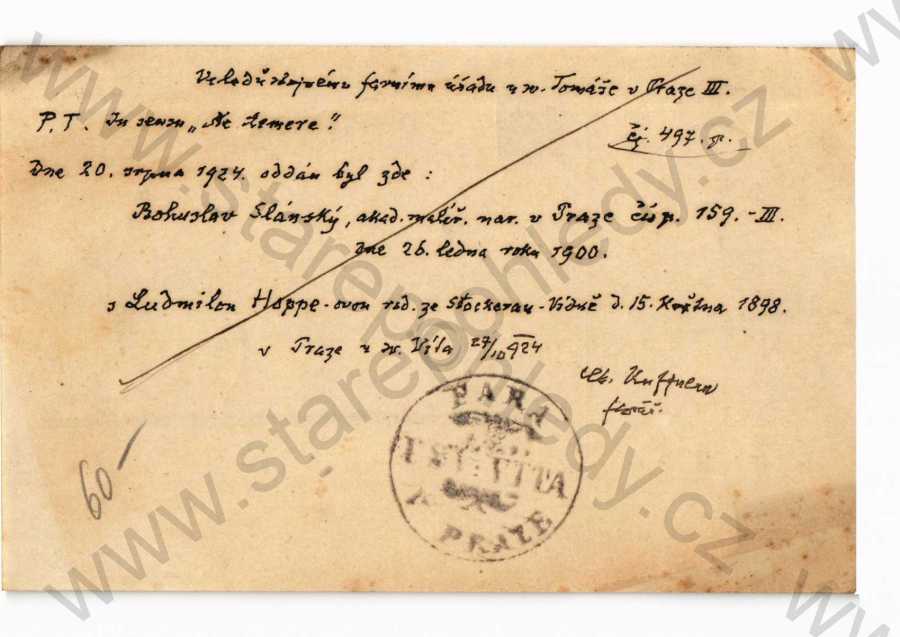 Veledůstojnému farnímu úřadu u sv. Tomáše v Praze III.
P.T. In sensu „Ne temere“!
čj. 497. p.
Dne 20. srpna 1924. oddán byl zde :
Bohuslav Slánský, akad. malíř. nar. v Praze čís p. 159. - III.
dne 26. ledna roku 1900.
s Ludmilou Hoppe-ovou rod. ze Stockerau-Vídně d. 15. Května 1898.
v Praze u sv. Víta 27/10 1924
farář.
60 -
FARA
U SV. VITA
V PRAZE
www.starepohledy.cz
www.starepohledy.cz